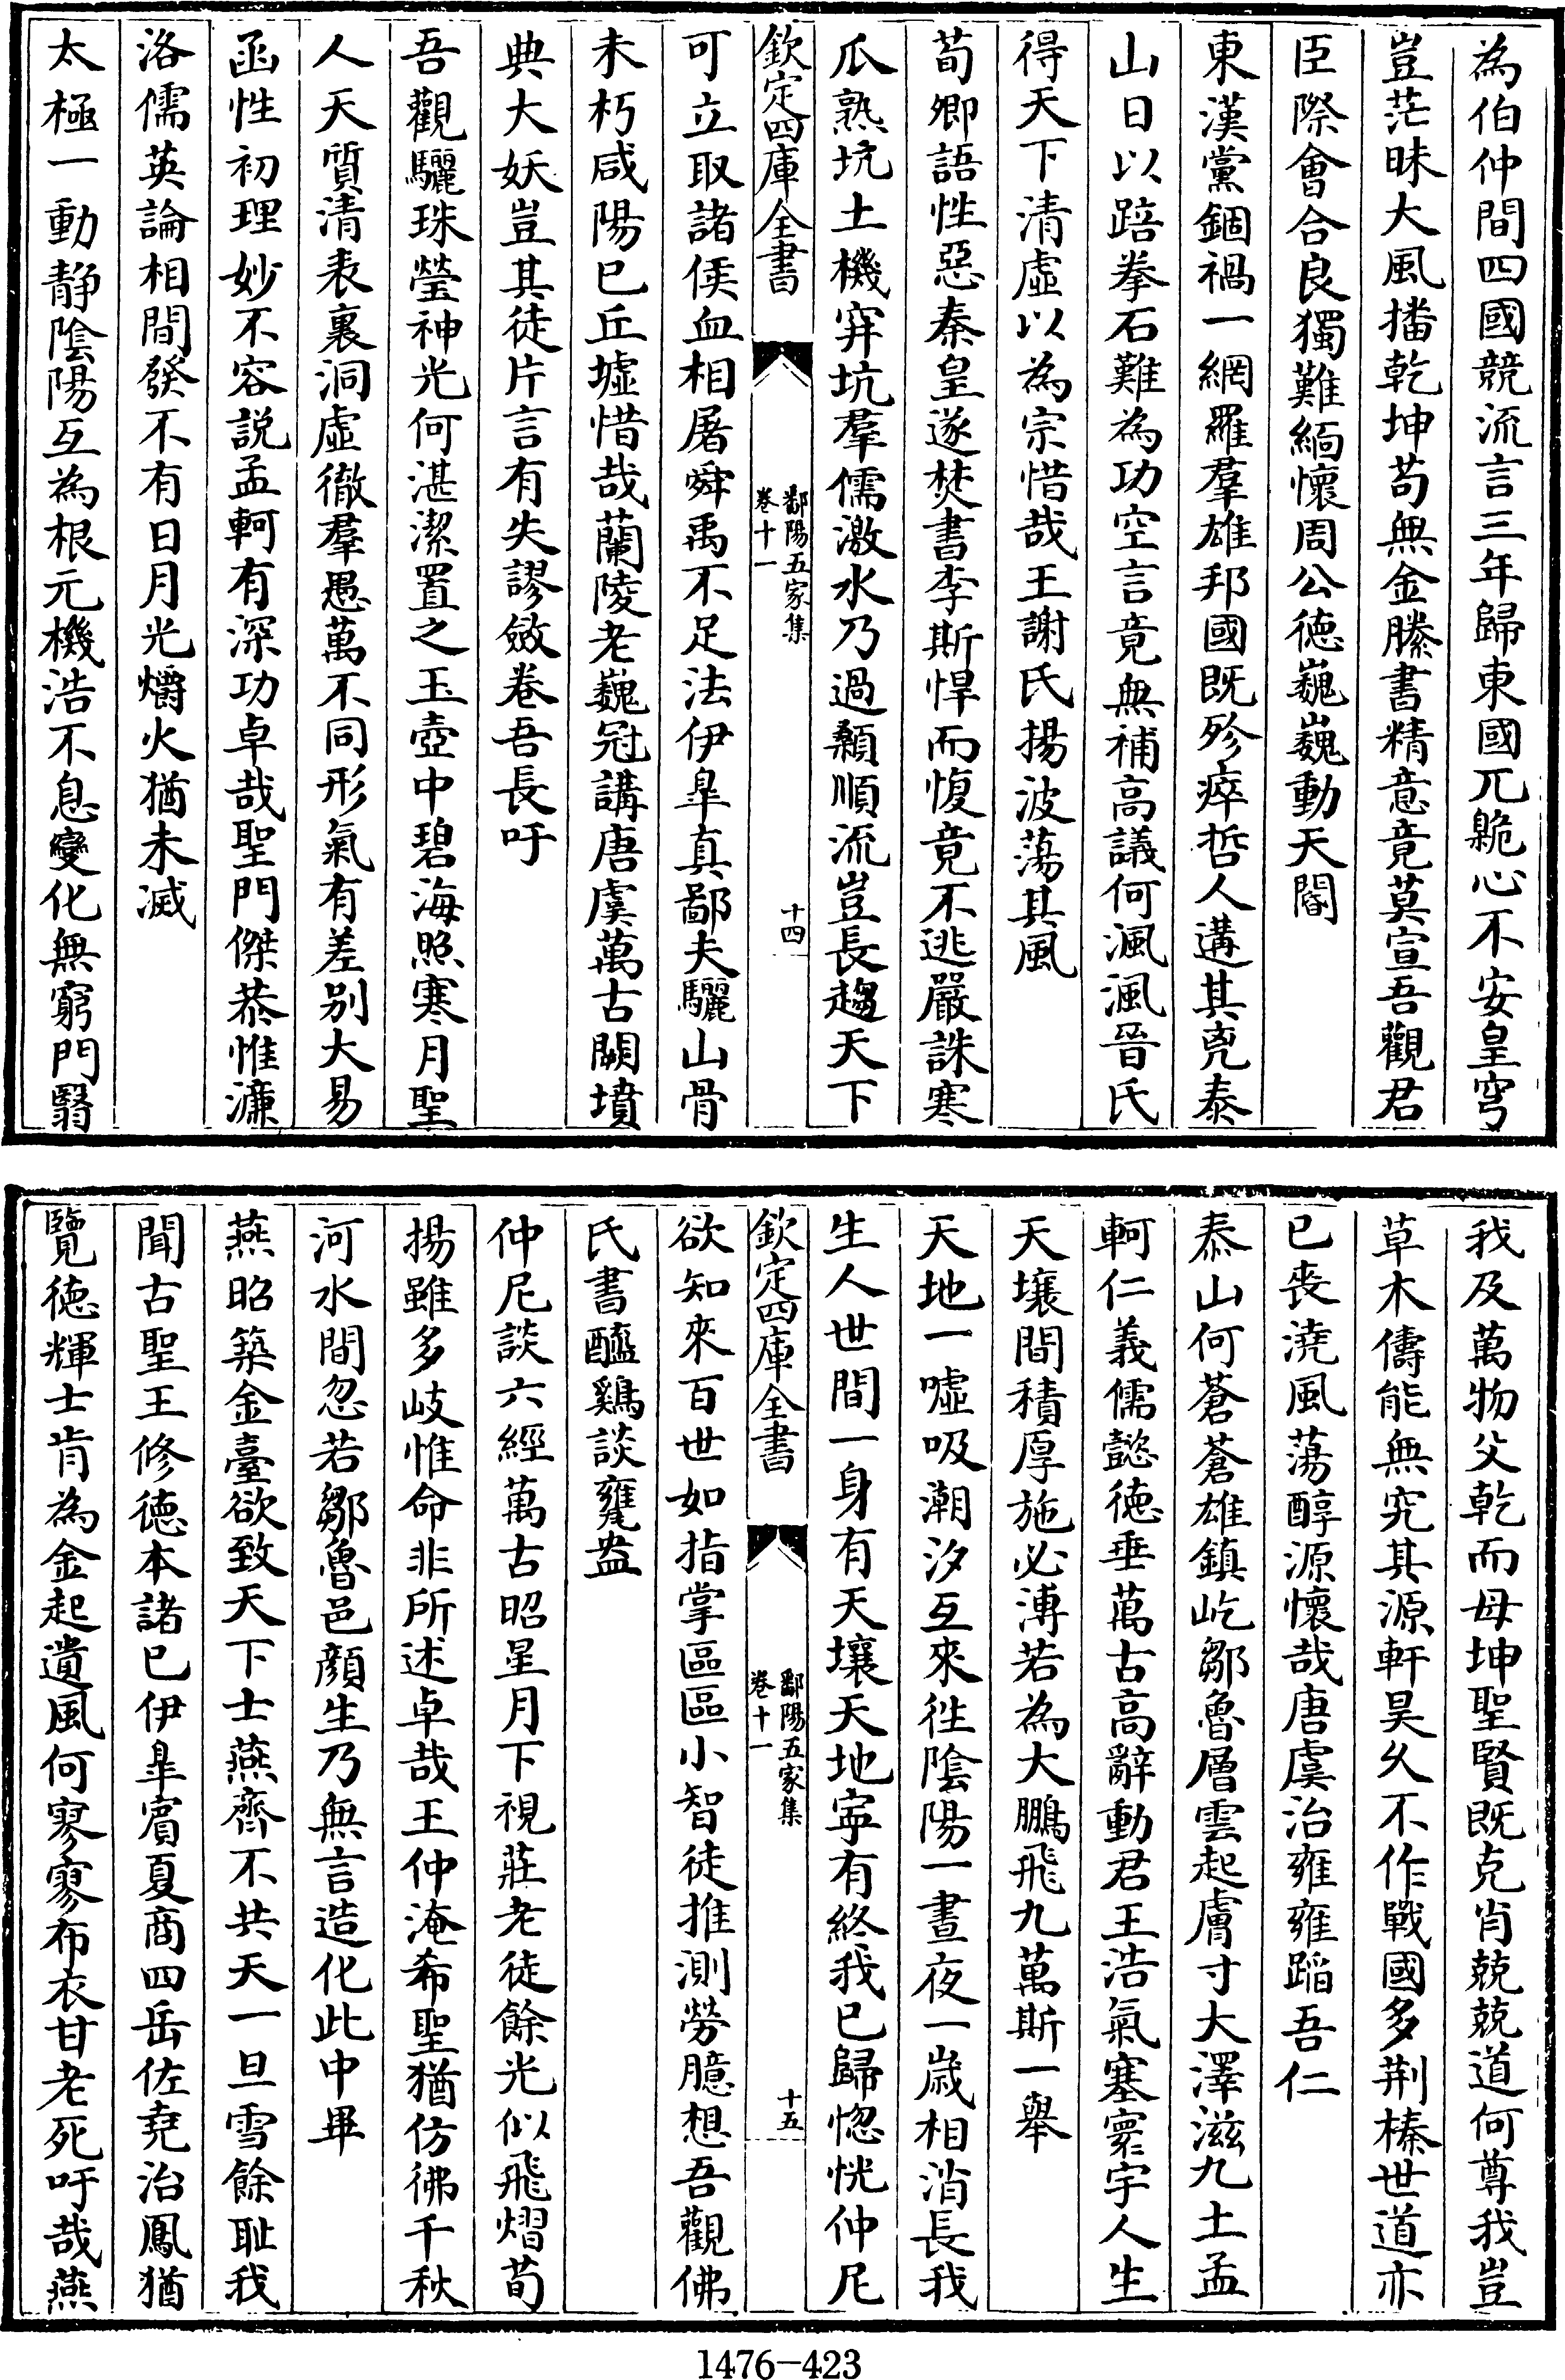 為伯仲間四國競流言三年歸東國兀臲心不安皇穹
豈茫昧大風播乾坤苟無金縢書精意竟莫宣吾觀君
臣際會合良獨難緬懷周公德巍巍動天閽
東漢黨錮禍一網羅羣雄邦國既殄瘁哲人遘其兇泰
山日以踣拳石難為功空言竟無補高議何渢渢晉氏
得天下清虛以為宗惜哉王謝氏揚波蕩其風
荀卿語性惡秦皇遂焚書李斯悍而愎竟不逃嚴誅寒
瓜熟坑土機穽坑羣儒激水乃過顙順流豈長趨天下
欽定四庫全書
鄱陽五家集
卷十一
十四
可立取諸侯血相屠舜禹不足法伊臯真鄙夫驪山骨
未朽咸陽已丘墟惜哉蘭陵老巍冠講唐虞萬古闕墳
典大妖豈其徒片言有失謬斂卷吾長吁
吾觀驪珠瑩神光何湛潔置之玉壺中碧海照寒月聖
人天質清表裏洞虛徹羣愚萬不同形氣有差别大易
函性初理妙不容説孟軻有深功卓哉聖門傑恭惟濂
洛儒英論相間發不有日月光爝火猶未滅
太極一動静陰陽互為根元機浩不息變化無窮門翳
我及萬物父乾而母坤聖賢既克肖兢兢道何尊我豈
草木儔能無究其源軒昊久不作戰國多荆榛世道亦
已丧澆風蕩醇源懷哉唐虞治雍雍蹈吾仁
泰山何蒼蒼雄鎮屹鄒魯層雲起膚寸大澤滋九土孟
軻仁義儒懿德垂萬古高辭動君王浩氣塞寰宇人生
天壤間積厚施必溥若為大鵬飛九萬斯一舉
天地一噓吸潮汐互來徃陰陽一晝夜一歲相消長我
生人世間一身有天壤天地寜有終我已歸惚恍仲尼
欽定四庫全書
鄱陽五家集
卷十一
十五
欲知來百世如指掌區區小智徒推測勞臆想吾觀佛
氏書醯雞談甕盎
仲尼談六經萬古昭星月下視莊老徒餘光似飛熠荀
揚雖多岐惟命非所述卓哉王仲淹希聖猶仿彿千秋
河水間忽若鄒魯邑顔生乃無言造化此中畢
燕昭築金臺欲致天下士燕齊不共天一旦雪餘耻我
聞古聖王修德本諸已伊臯賓夏商四岳佐堯治鳳猶
覽德輝士肯為金起遺風何寥寥布衣甘老死吁哉燕
1476-423